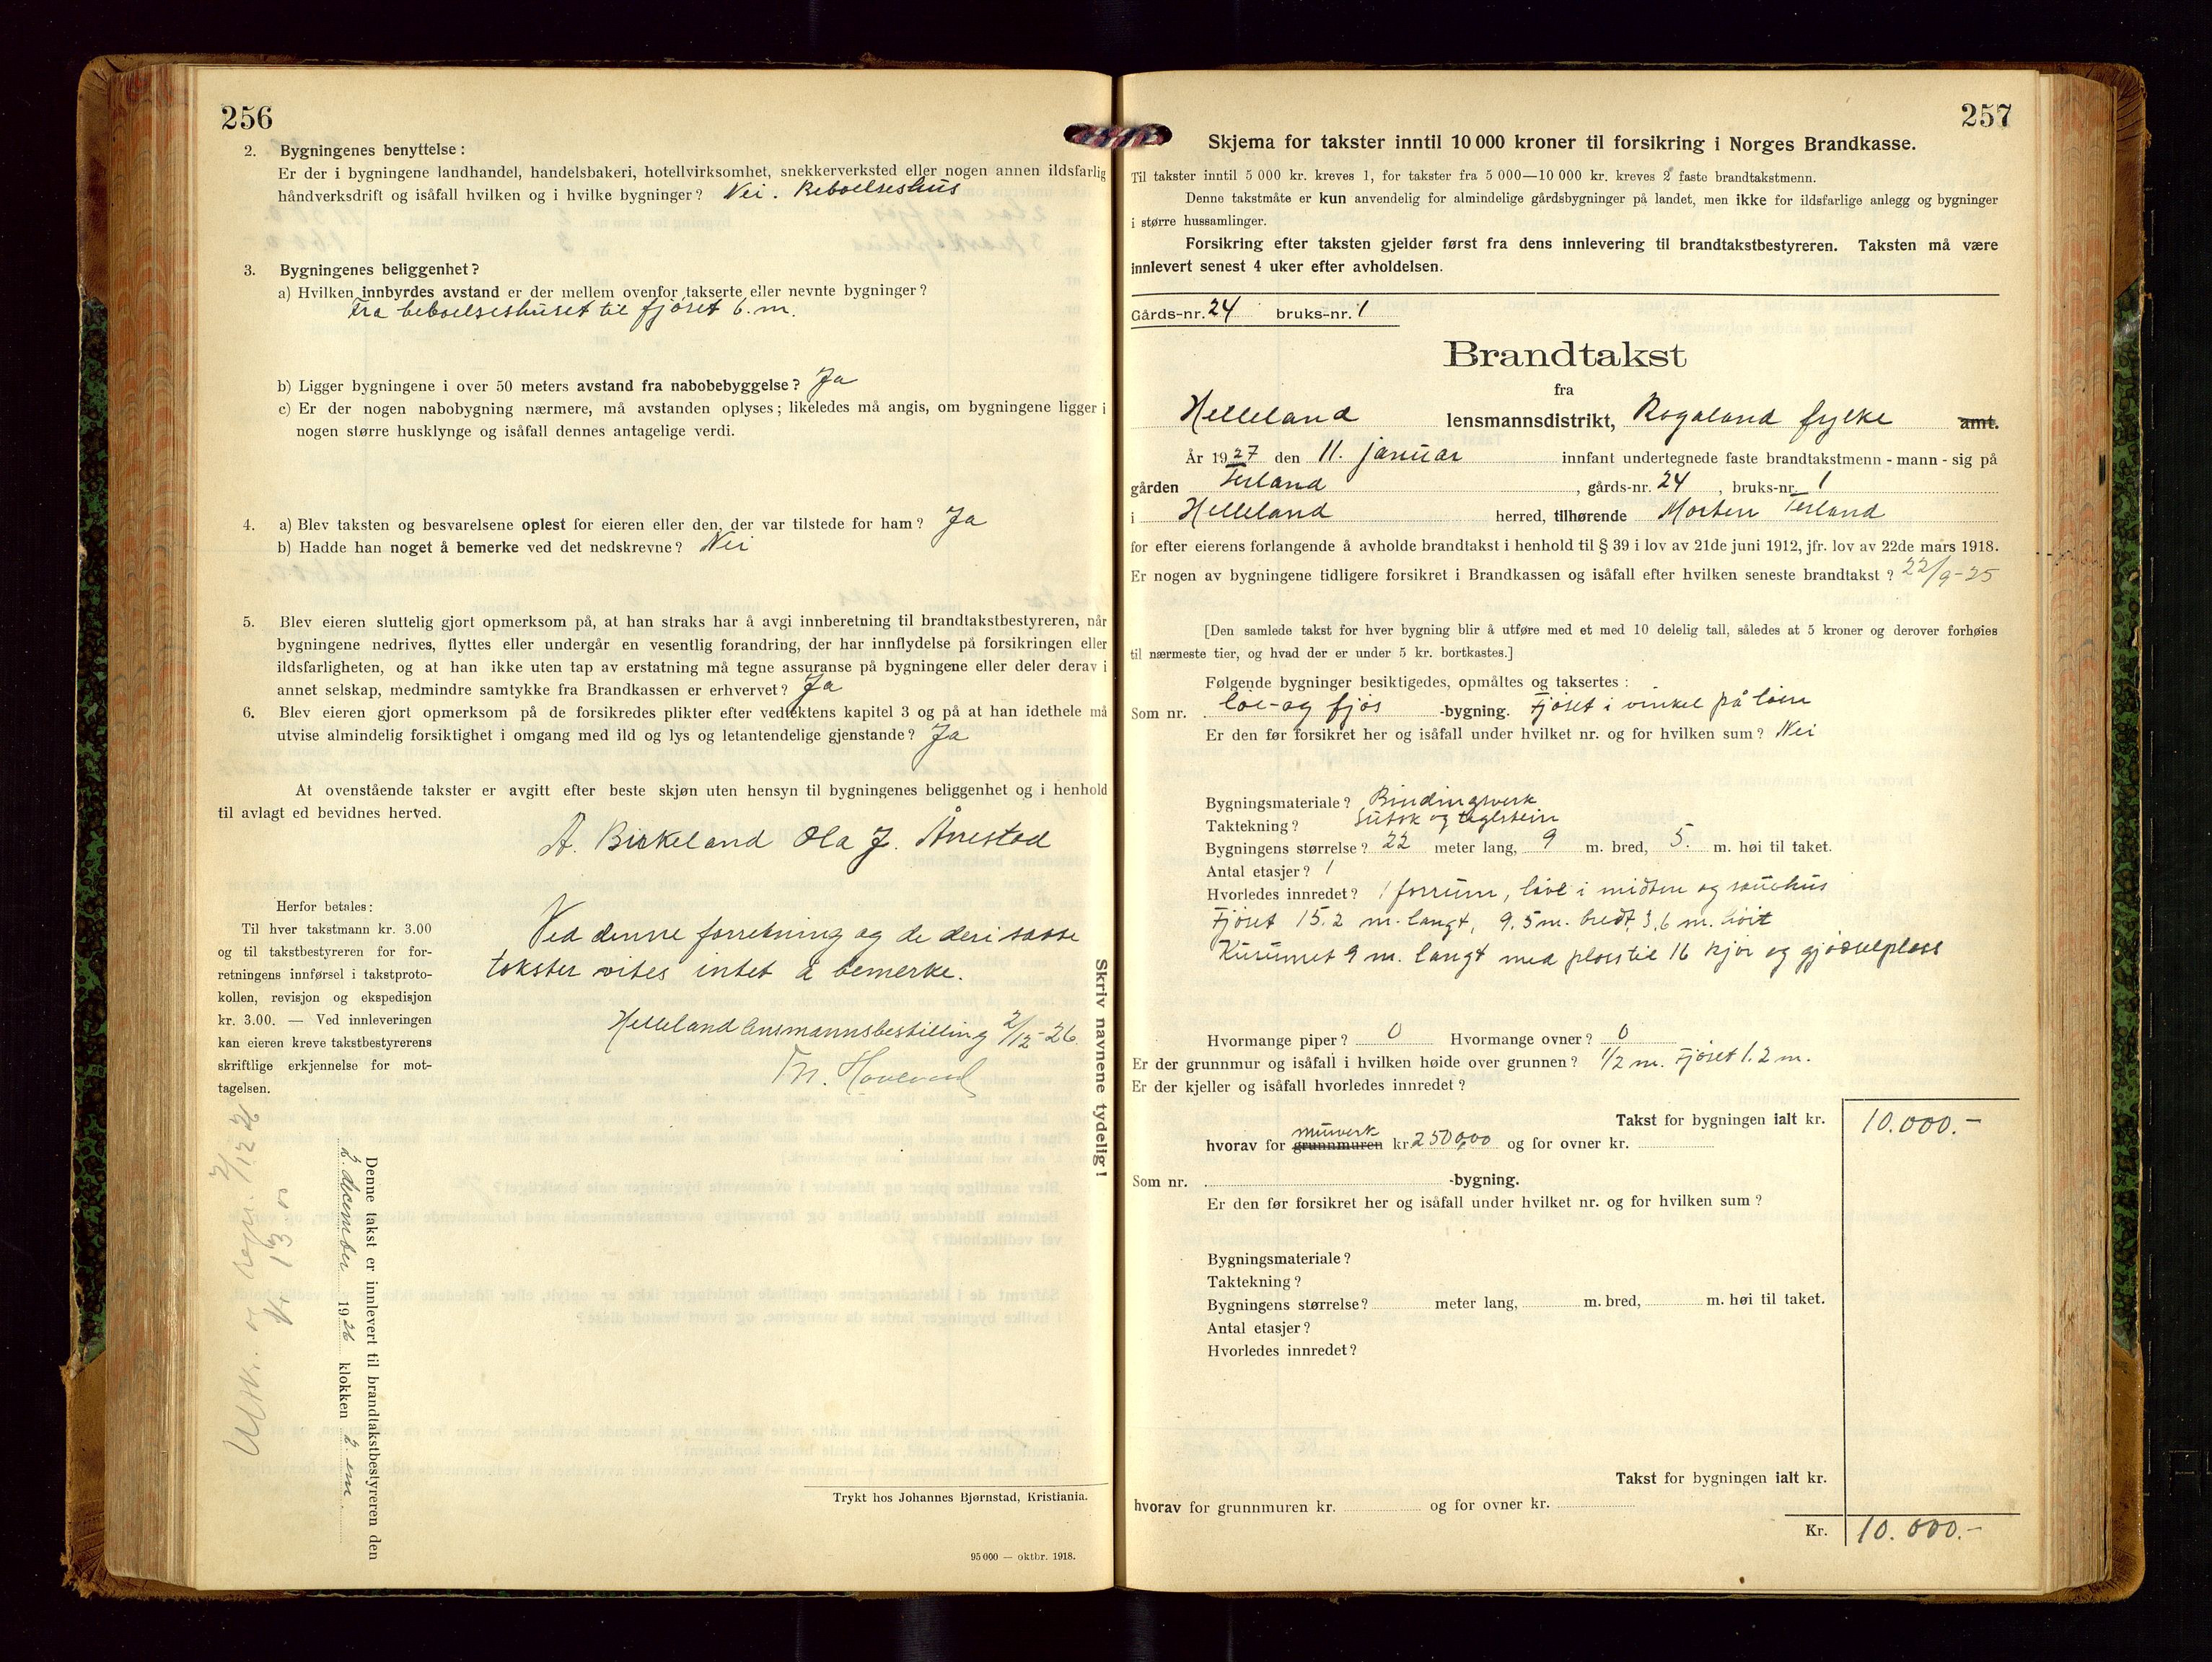 256
2. Bygningenes benyttelse:
Er der i bygningene landhandel, handelsbakeri, hotellvirksomhet, snekkerverksted eller nogen annen ildsfarlig
håndverksdrift og isåfall hvilken og i hvilke bygninger? Nei. Beboelseshus
3. Bygningenes beliggenhet?
a) Hvilken innbyrdes avstand er der mellem ovenfor takserte eller nevnte bygninger?
Fra beboelseshuset til fjøset 6. m.
b) Ligger bygningene i over 50 meters avstand fra nabobebyggelse? Ja
c) Er der nogen nabobygning nærmere, må avstanden oplyses; likeledes må angis, om bygningene ligger i
nogen større husklynge og isåfall dennes antagelige verdi.
4. a) Blev taksten og besvarelsene oplest for eieren eller den, der var tilstede for ham? Ja
b) Hadde han noget å bemerke ved det nedskrevne? Nei
5. Blev eieren sluttelig gjort opmerksom på, at han straks har å avgi innberetning til brandtakstbestyreren, når
bygningene nedrives, flyttes eller undergår en vesentlig forandring, der har innflydelse på forsikringen eller
ildsfarligheten, og at han ikke uten tap av erstatning må tegne assuranse på bygningene eller deler derav i
annet selskap, medmindre samtykke fra Brandkassen er erhvervet? Ja
6. Blev eieren gjort opmerksom på de forsikredes plikter efter vedtektens kapitel 3 og på at han idethele må
utvise almindelig forsiktighet i omgang med ild og lys og letantendelige gjenstande? Ja
At ovenstående takster er avgitt efter beste skjøn uten hensyn til bygningenes beliggenhet og i henhold
til avlagt ed bevidnes herved.
A. Birkeland Ola J. Årrestad
Herfor betales:
Til hver takstmann kr. 3.00
og til takstbestyreren for for-
retningens innførsel i takstproto-
kollen, revisjon og ekspedisjon
kr. 3.00. — Ved innleveringen
kan eieren kreve takstbestyrerens
skriftlige erkjennelse for mot-
tagelsen.
Ved denne forretning og de deri satte
takster vites intet å bemerke.
Helleland lensmannsbestilling 2/12-26.
Skriv navnene tydelig!
Denne takst er innlevert til brandtakstbestyreren den
2. december 1926 klokken 2. em
Utskr. og 2/12 26
Kr 13
Trykt hos Johannes Bjørnstad, Kristiania.
95 000 — oktbr. 1918.
257
Skjema for takster inntil 10 000 kroner til forsikring i Norges Brandkasse.
Til takster inntil 5 000 kr. kreves 1, for takster fra 5 000—10 000 kr. kreves 2 faste brandtakstmenn.
Denne takstmåte er kun anvendelig for almindelige gårdsbygninger på landet, men ikke for ildsfarlige anlegg og bygninger
i større hussamlinger.
Forsikring efter taksten gjelder først fra dens innlevering til brandtakstbestyreren. Taksten må være
innlevert senest 4 uker efter avholdelsen.
Gårds-nr. 24 bruks-nr. 1
Brandtakst
fra
Helleland lensmannsdistrikt, Rogaland fylke amt.
År 1927 den 11. januar innfant undertegnede faste brandtakstmenn - mann - sig på
gården Terland, gårds-nr. 24, bruks-nr. 1
i Helleland herred, tilhørende Morten Terland
for efter eierens forlangende å avholde brandtakst i henhold til § 39 i lov av 21de juni 1912, jfr. lov av 22de mars 1918.
Er nogen av bygningene tidligere forsikret i Brandkassen og isåfall efter hvilken seneste brandtakst? 22/9-25
[Den samlede takst for hver bygning blir å utføre med et med 10 delelig tall, således at 5 kroner og derover forhøies
til nærmeste tier, og hvad der er under 5 kr. bortkastes.]
Følgende bygninger besiktigedes, opmåltes og taksertes:
Som nr. løe- og fjøs -bygning. Fjøset i vinkel på løen
Er den før forsikret her og isåfall under hvilket nr. og for hvilken sum? Nei
Bygningsmateriale? Bindingsverk
Taktekning? Sutak og taglstein
Bygningens størrelse? 22 meter lang, 9 m. bred, 5. m. høi til taket.
Antal etasjer? 1
Hvorledes innredet? 1 forrum, løve i midten og sauehus
Fjøset 15.2 m. langt, 9.5 m. bredt, 3,6 m. høit
Kurumet 9 m. langt med plass til 16 kjør og gjødselplass
Hvormange piper? 0 Hvormange ovner? 0
Er der grunnmur og isåfall i hvilken høide over grunnen? 1/2 m. Fjøset 1.2 m.
Er der kjeller og isåfall hvorledes innredet?
Takst for bygningen ialt kr. 10.000.-
hvorav for grunnmuren murverk kr. 2500,00 og for ovner kr.
Som nr. -bygning.
Er den før forsikret her og isåfall under hvilket nr. og for hvilken sum?
Bygningsmateriale?
Taktekning?
Bygningens størrelse? meter lang, m. bred, m. høi til taket.
Antal etasjer?
Hvorledes innredet?
Takst for bygningen ialt kr.
hvorav for grunnmuren kr. og for ovner kr.
Kr. 10.000.-